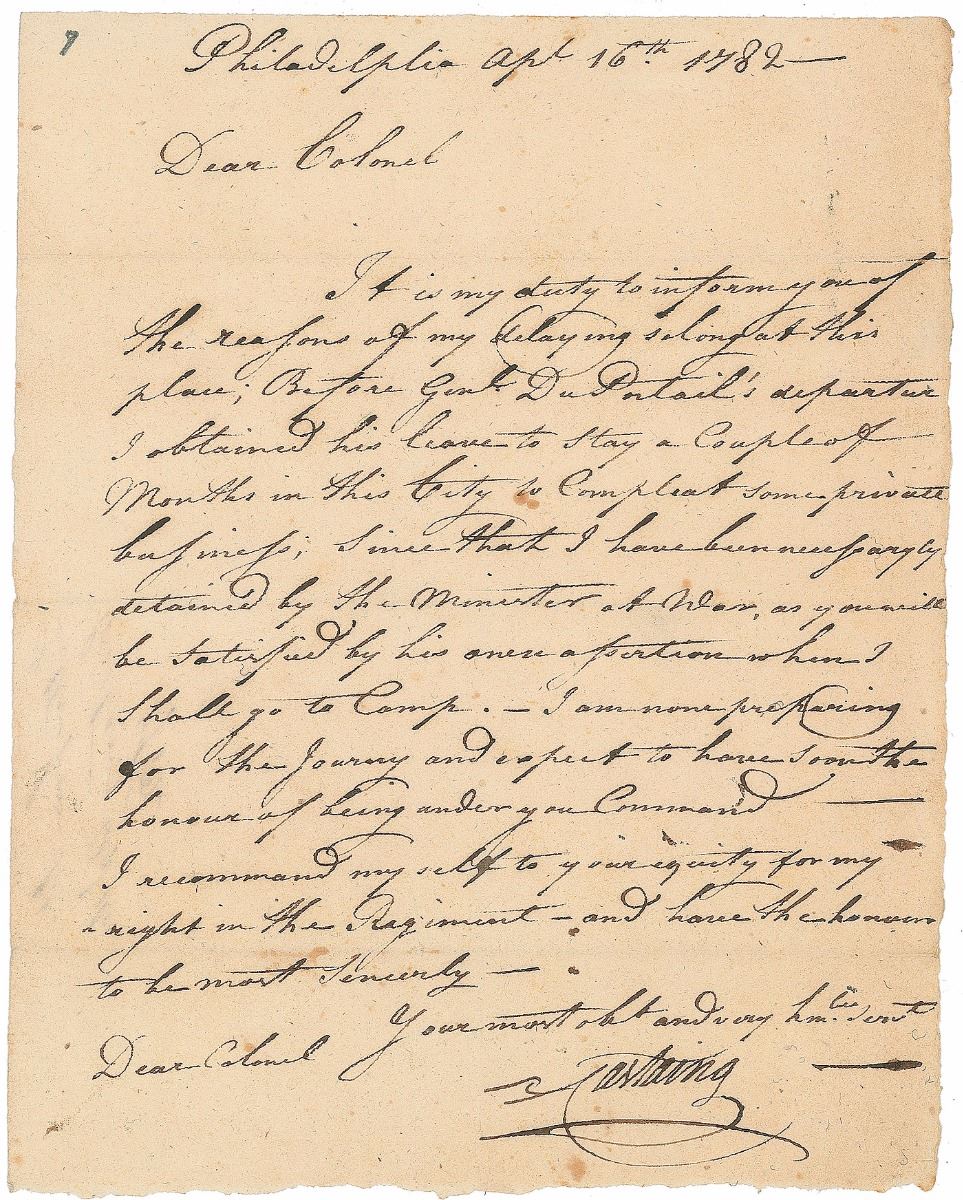 7
Philadelphia Apl 16th 1782 —
Dear Colonel
It is my duty to inform you of
the reasons of my delaying so long at this
place; Before Genl. Du Portail's departure
I obtained his leave to stay a Couple of
Months in this City to Compleat some private
business; Since that I have been necessaryly
detained by the Minister at War, as you will
be satisfied by his own assertion when I
shall go to Camp. — I am now preparing
for the Journy and expect to have soon the
honour of being under you Command —
I recommand my self to your equity for my
right in the Regiment — and have the honour
to be most Sincerly —
Your most obt and very hmble Servt
Dear Colonel
Castaing